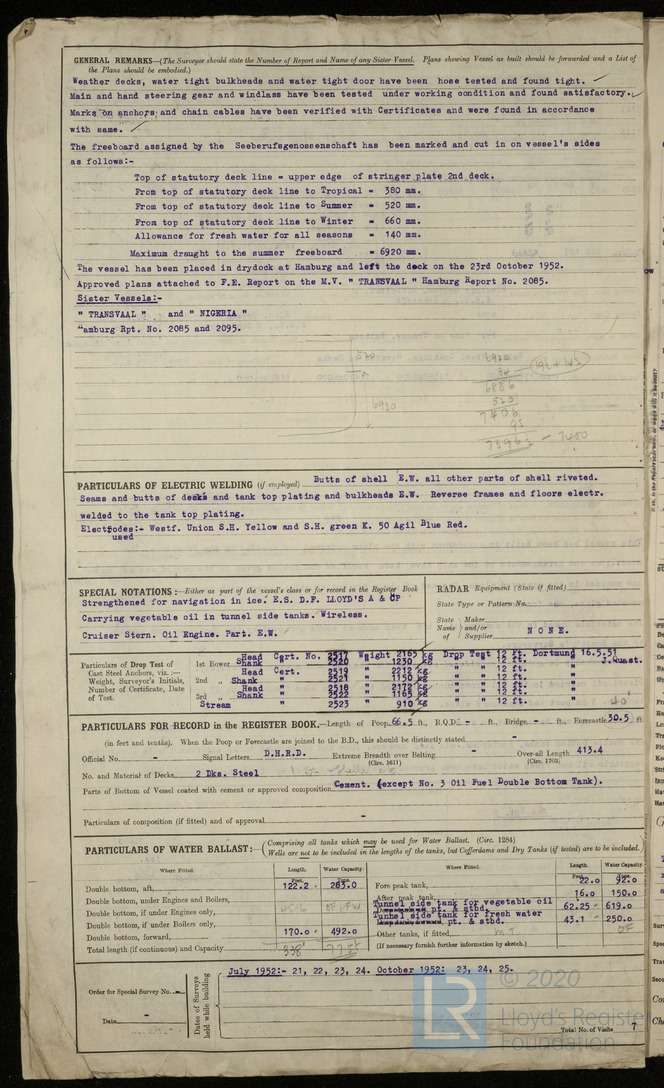 GENERAL REMARKS—(The Surveyor should state the Number of Report and Name of any Sister Vessel. Plans showing Vessel as built should be forwarded and a List of
the Plans should be embodied.)
Weather decks, water tight bulkheads and water tight door have been hose tested and found tight.
Main and hand steering gear and windlass have been tested under working condition and found satisfactory.
Marks on anchors and chain cables have been verified with Certificates and were found in accordance
with same.
The freeboard assigned by the Seeberufsgenossenschaft has been marked and cut in on vessel's sides
as follows:-
Top of statutory deck line = upper edge of stringer plate 2nd deck.
From top of statutory deck line to Tropical = 380 mm.
From top of statutory deck line to Summer = 520 mm.
From top of statutory deck line to Winter = 660 mm.
Allowance for fresh water for all seasons = 140 mm.
Maximum draught to the summer freeboard = 6920 mm.
The vessel has been placed in drydock at Hamburg and left the dock on the 23rd October 1952.
Approved plans attached to F.E. Report on the M.V. " TRANSVAAL " Hamburg Report No. 2085.
Sister Vessels:-
" TRANSVAAL " and " NIGERIA "
amburg Rpt. No. 2085 and 2095.
520
6920
6920
34
6886
520
7406
7400
PARTICULARS OF ELECTRIC WELDING (if employed) Butts of shell E.W. all other parts of shell riveted.
Seams and butts of decks and tank top plating and bulkheads E.W. Reverse frames and floors electr.
welded to the tank top plating.
Electrodes:- Westf. Union S.H. Yellow and S.H. green K. 50 Agil Blue Red.
used
SPECIAL NOTATIONS:—Either as part of the vessel's class or for record in the Register Book
Strengthened for navigation in ice. E.S. D.F. LLOYD'S A & CP
Carrying vegetable oil in tunnel side tanks. Wireless.
Cruiser Stern. Oil Engine. Part. E.W.
RADAR Equipment (State if fitted)
State Type or Pattern No.
State Maker
Name and/or
of Supplier NONE.
Particulars of Drop Test of
Cast Steel Anchors, viz.:—
Weight, Surveyor's Initials,
Number of Certificate, Date
of Test.
1st Bower Head Cert. No. 2517 Weight 2165 kg Drop Test 12 ft. Dortmund 16.5.51
Shank 2520 " 1230 kg " " 12 ft. J.Quast.
Head Cert. 2519 " 2212 kg " " 12 ft. "
2nd " Shank " 2521 " 1150 kg " " 12 ft. "
Head " 2518 " 2172 kg " " 12 ft. "
3rd " Shank " 2522 " 1165 kg " " 12 ft. "
Stream " 2523 " 910 kg " " 12 ft. "
40'
PARTICULARS FOR RECORD in the REGISTER BOOK.—Length of Poop 66.5 ft., R.Q.D. - ft., Bridge - ft., Forecastle 30.5 ft
(in feet and tenths). When the Poop or Forecastle are joined to the B.D., this should be distinctly stated -
Official No. - Signal Letters D.H.R.D. Extreme Breadth over Belting - Over-all Length 413.4
(Circ. 1611) (Circ. 1703)
No. and Material of Decks 2 Dks. Steel
Parts of Bottom of Vessel coated with cement or approved composition Cement. (except No. 3 Oil Fuel Double Bottom Tank).
Particulars of composition (if fitted) and of approval -
PARTICULARS OF WATER BALLAST:—(Comprising all tanks which may be used for Water Ballast. (Circ. 1284)
Wells are not to be included in the lengths of the tanks, but Cofferdams and Dry Tanks (if tested) are to be included.)
Where Fitted. Length. Water Capacity. Where Fitted. Length. Water Capacity.
Feet. Tons. Feet. Tons.
Double bottom, aft, 122.2 283.0 Fore peak tank, 22.0 92.0
Double bottom, under Engines and Boilers, After peak tank, 16.0 150.0
Double bottom, if under Engines only, Tunnel side tank for vegetable oil
pt. & stbd. 62.25 619.0
Double bottom, if under Boilers only, Tunnel side tank for fresh water
pt. & stbd. 43.1 250.0
Double bottom, forward, 170.0 492.0 Other tanks, if fitted, OF
Total length (if continuous) and Capacity 338' 775 (If necessary furnish further information by sketch.)
Order for Special Survey No. -
Date -
Dates of Surveys
held while building
July 1952:- 21, 22, 23, 24. October 1952: 23, 24, 25.
Total No. of Visits 7
LR
© 2020
Lloyd's Register
Foundation